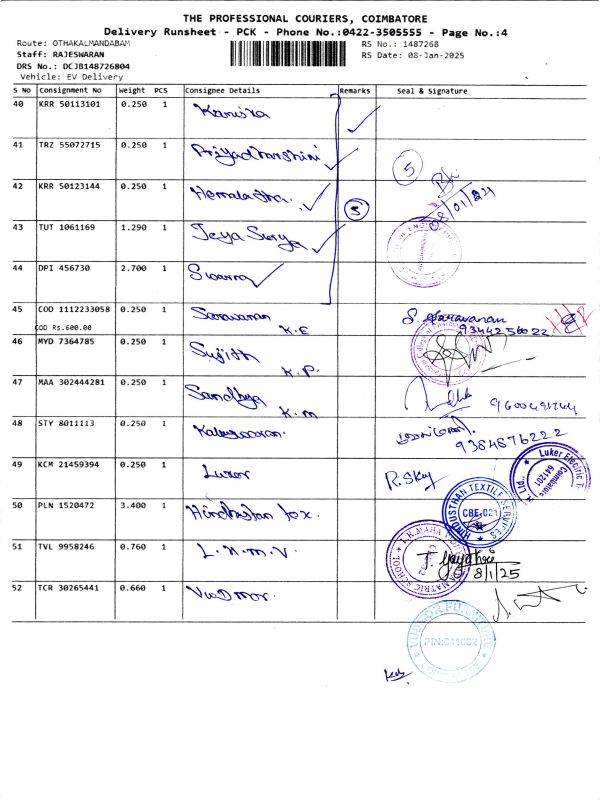 THE PROFESSIONAL COURIERS, COIMBATORE
Delivery Runsheet - PCK - Phone No.:0422-3505555 - Page No.:4
Route: OTHAKALMANDABAM
RS No.: 1487268
Staff: RAJESWARAN
RS Date: 08-Jan-2025
DRS No.: DCJB148726804
Vehicle: EV Delivery
S No Consignment No Weight PCS Consignee Details Remarks Seal & Signature
40 KRR 50113101 0.250 1 Kaniska
41 TRZ 55072715 0.250 1 Priyadharshini 5
42 KRR 50123144 0.250 1 Hemalatha. 5
43 TUT 1061169 1.290 1 Jeya Surya
44 DPI 456730 2.700 1 Swarna
45 COD 1112233058 0.250 1 Saravanan K.E S. Saravanan
COD Rs.600.00 9344256022
46 MYD 7364785 0.250 1 Sujith K.P.
47 MAA 302444281 0.250 1 Sandhya K.m
48 STY 8011113 0.250 1
9384876222
49 KCM 21459394 0.250 1 Luker R.Sky Luker Electric
Coimbatore
641201
50 PLN 1520472 3.400 1 Hindhustan Tex. HINDUSTHAN TEXTILE SERVICES
CBE-021
51 TVL 9958246 0.760 1 L.R.M.V. MATRIC SCHOOL
8/1/25
52 TCR 30265441 0.660 1
FURNITURE